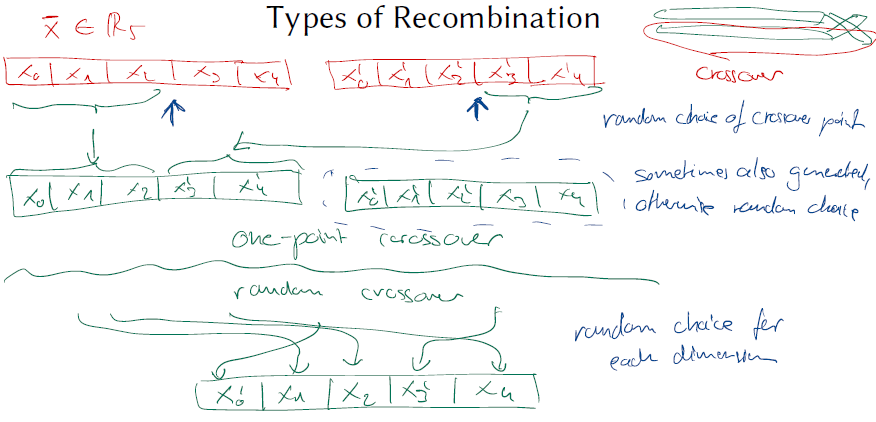 Types of Recombination
x̄ ∈ ℝ5
crossover
x0 | x1 | x2 | x3 | x4
x'0 | x'1 | x'2 | x'3 | x'4
random choice of crossover point
x0 | x1 | x2 | x'3 | x'4
x'0 | x'1 | x'2 | x3 | x4
sometimes also generated,
otherwise random choice
one-point crossover
random crossover
random choice for
each dimension
x'0 | x1 | x2 | x'3 | x4